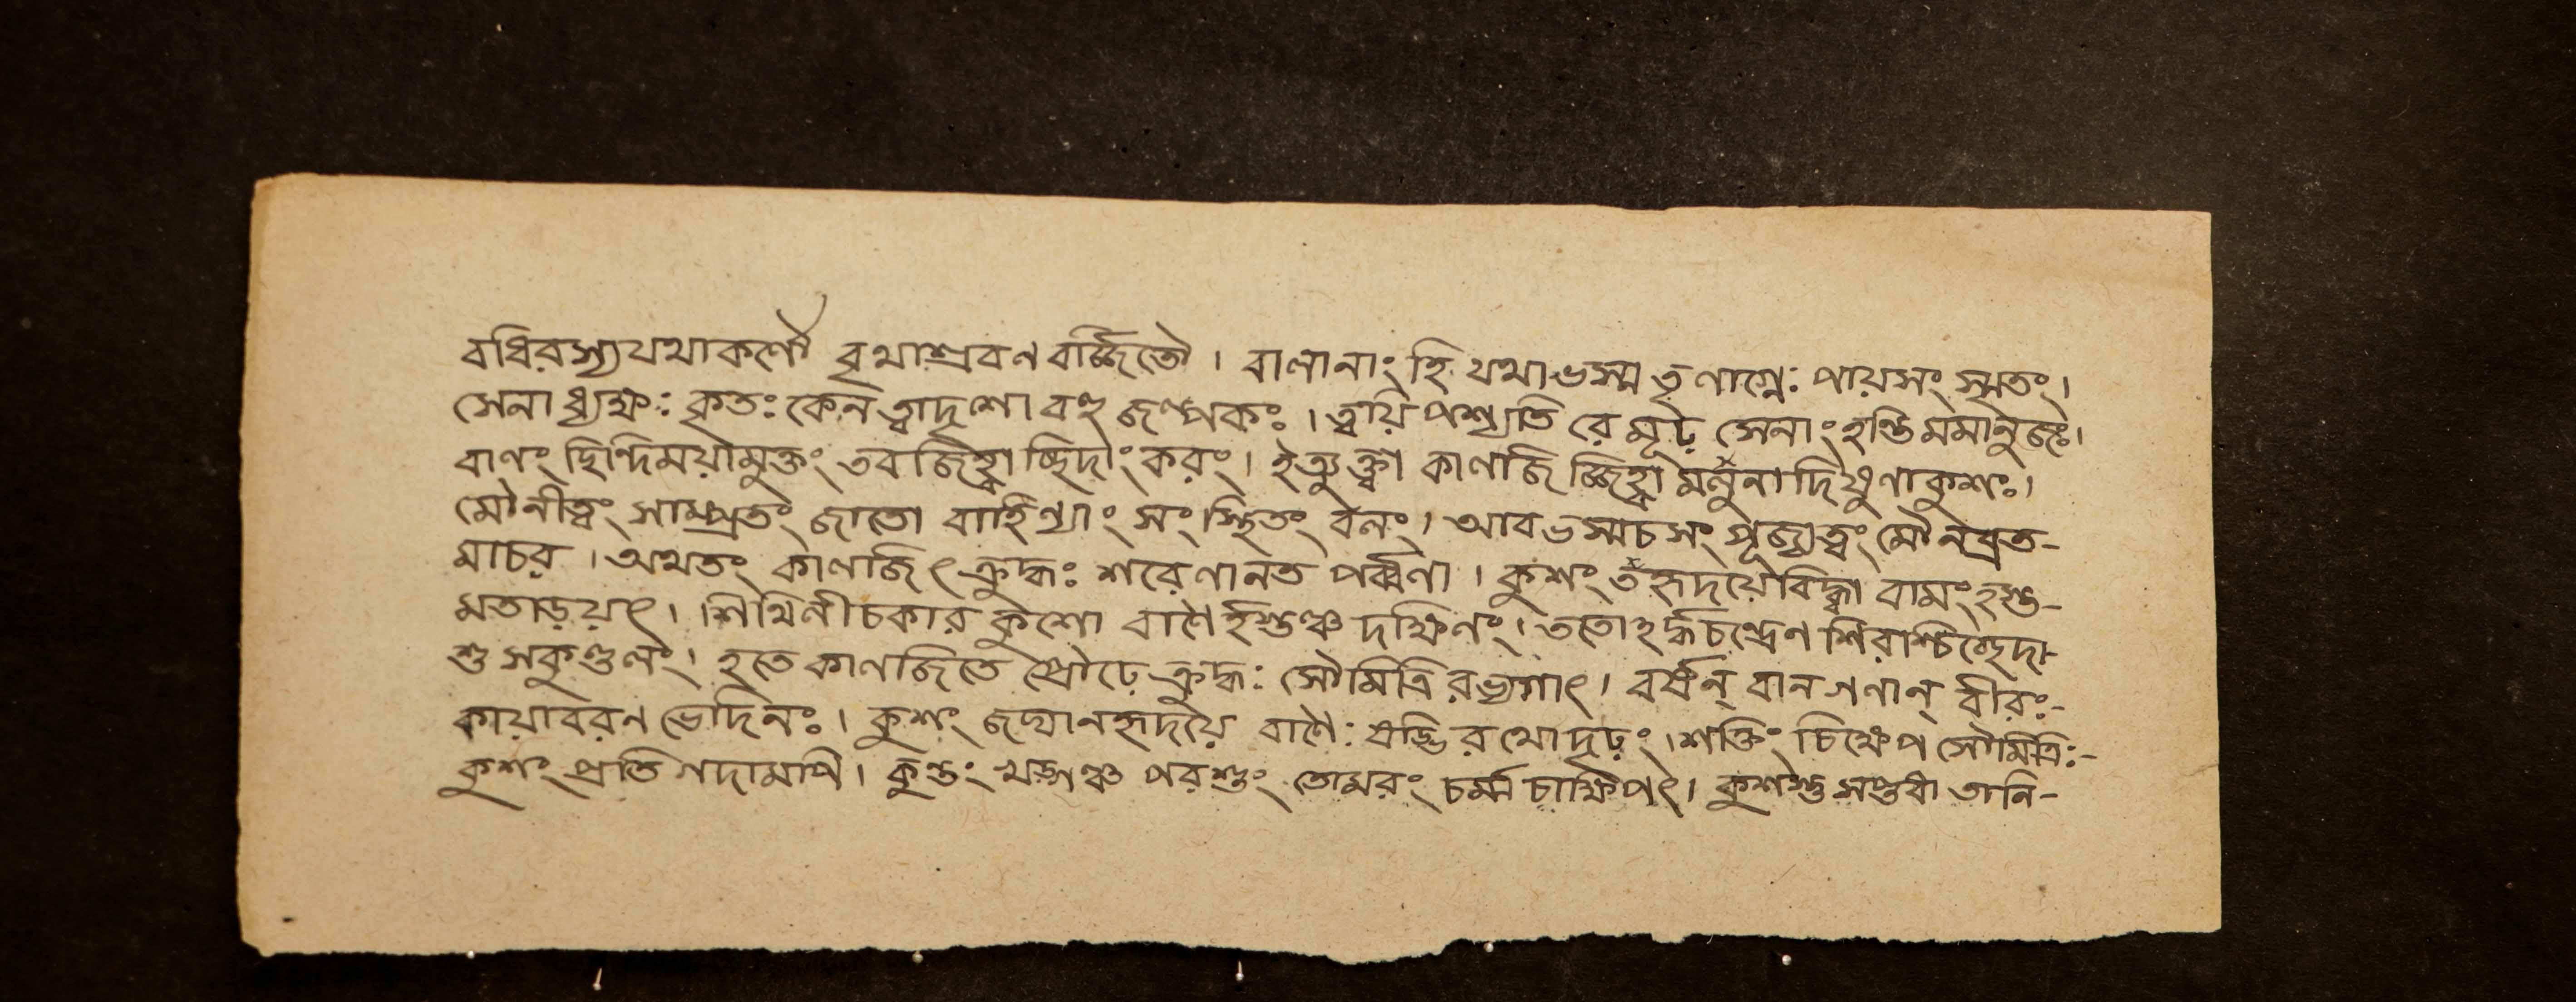 বধিরস্য যথাকর্ণৌ বৃথাশ্রবণ বর্জ্জিতৌ । বাণানাং হি যথাভস্ম তৃণাগ্নেঃ পায়সং স্মৃতং ।
সেনাধ্যক্ষঃ কৃতঃ কেন ত্বাদৃশো বহু জল্পকঃ । ত্বয়ি পশ্যতি রে মূঢ় সেনাং হন্তি মমানুজঃ ।
বাণং ছিন্দি ময়ামুক্তং তব জিহ্বাচ্ছিদাং করং । ইত্যুক্ত্বা কালজি জ্জিহ্বা মর্জ্জুনাদিষুণা কুশঃ ।
মৌনীত্বং সাম্প্রতং জাতো বাহিন্যাং সংস্থিতং বনং । আবভস্মচ সংপূজ্য ত্বং মৌনব্রত-
মাচর । অথতং কালজিৎ ক্রুদ্ধঃ শরেণানত পর্ব্বণা । কুশং তং হৃদয়ে বিদ্ধ্বা বামং হস্ত-
মতাড়য়ৎ । শিথিলীচকার কুশো বাণৈর্হস্তঞ্চ দক্ষিণং । ততোহর্দ্ধচন্দ্রেণ শিরশ্চিচ্ছেদা-
শু সকুণ্ডলং । হতে কালজিতে প্রৌঢ়ে ক্রুদ্ধঃ সৌমিত্রি রভ্যগাৎ । বর্ষন্ বান গণান্ বীরঃ-
কায়াবরণ ভেদিনঃ । কুশং জঘান হৃদয়ে বাণৈঃ ষড্ভি রথো দৃঢ়ং । শক্তিং চিক্ষেপ সৌমিত্রিঃ-
কুশং প্রতি গদামপি । কুন্তং খড়্গঞ্চ পরশুং তোমরং চর্ম্ম চাক্ষিপৎ । কুশস্তু সপ্তধা তানি-